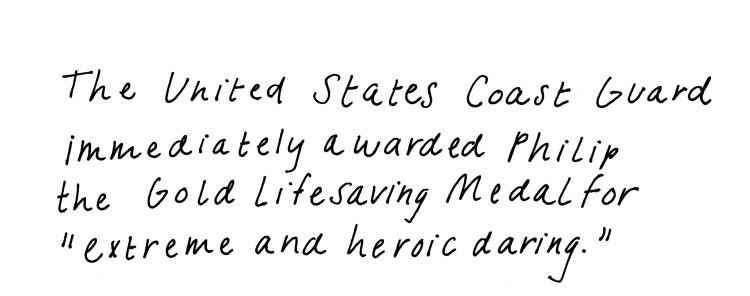 The United States Coast Guard
immediately awarded Philip
the Gold Lifesaving Medal for
"extreme and heroic daring."